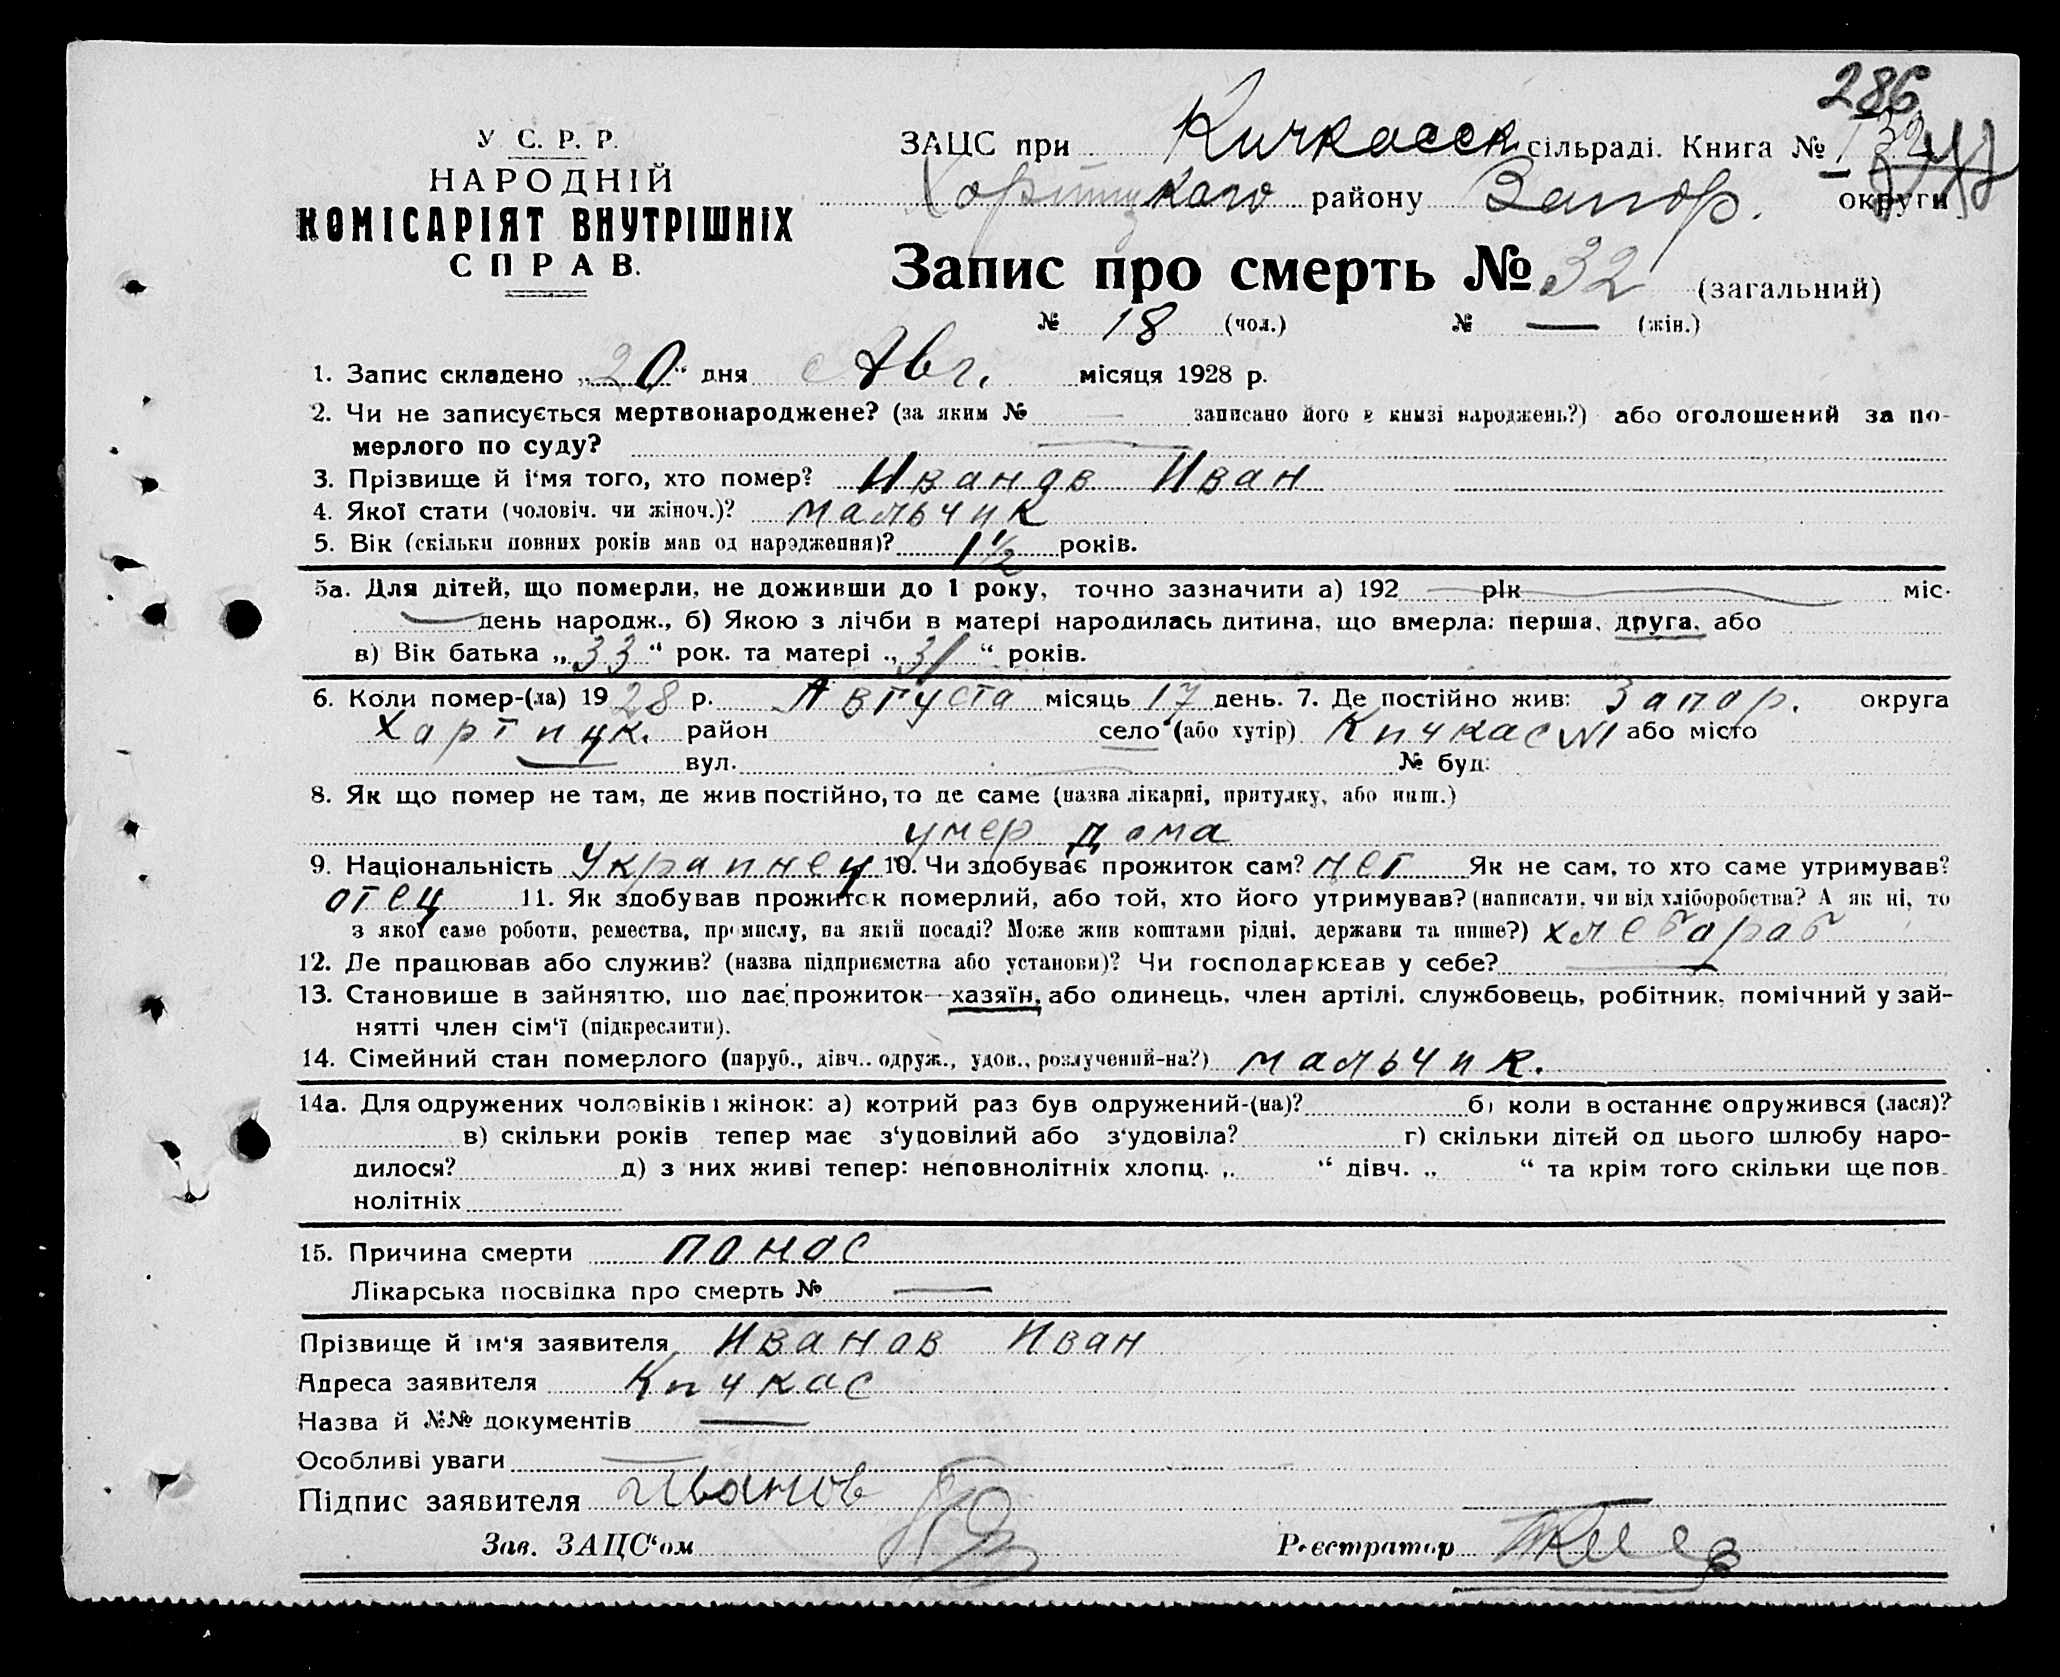 286
У С. Р. Р.
НАРОДНІЙ
КОМІСАРІЯТ ВНУТРІШНІХ
СПРАВ.
ЗАЦС при Кичкасск сільраді. Книга № 1
Хортицкого району Запор. округи
Запис про смерть № 32 (загальний)
№ 18 (чол.) № — (жін.)
1. Запис складено „20" дня Авг. місяця 1928 р.
2. Чи не записується мертвонароджене? (за яким № — записано його в книзі народжень?) або оголошений за по-
мерлого по суду? —
3. Прізвище й і'мя того, хто помер? Иванов Иван
4. Якої стати (чоловіч. чи жіноч.)? мальчик
5. Вік (скільки повних років мав од народження)? 1 1/2 років.
5а. Для дітей, що померли, не доживши до 1 року, точно зазначити а) 192 — рік — міс.
— день народж., б) Якою з лічби в матері народилась дитина, що вмерла: перша, друга, або
в) Вік батька „33" рок. та матері „31" років.
6. Коли помер-(ла) 1928 р. Августа місяць 17 день. 7. Де постійно жив: Запор. округа
Хартицк. район село (або хутір) Кичкас №1 або місто
— вул. — № буд:
8. Як що помер не там, де жив постійно, то де саме (назва лікарні, притулку, або инш.)
умер дома
9. Національність Украинец 10. Чи здобуває прожиток сам? нет Як не сам, то хто саме утримував?
отец 11. Як здобував прожиток померлий, або той, хто його утримував? (написати, чи від хліборобства? А як ні, то
з якої саме роботи, ремества, промислу, на якій посаді? Може жив коштами рідні, держави та инше?) хлебараб
12. Де працював або служив? (назва підприємства або установи)? Чи господарював у себе? —
13. Становище в зайняттю, що дає прожиток—хазяїн, або одинець, член артілі, службовець, робітник, помічний у зай-
нятті член сім'ї (підкреслити).
14. Сімейний стан померлого (паруб., дівч.. одруж., удов., розлучений-на?) мальчик.
14а. Для одружених чоловіків і жінок: а) котрий раз був одружений-(на)? б) коли в останнє одружився (лася)?
в) скільки років тепер має з'удовілий або з'удовіла? г) скільки дітей од цього шлюбу наро-
дилося? д) з них живі тепер: неповнолітніх хлопц. „ " дівч. „ " та крім того скільки ще пов-
нолітніх
15. Причина смерти панос
Лікарська посвідка про смерть № —
Прізвище й ім'я заявителя Иванов Иван
Адреса заявителя Кичкас
Назва й №№ документів —
Особливі уваги —
Підпис заявителя Иванов
Зав. ЗАЦС'ом Реєстратор